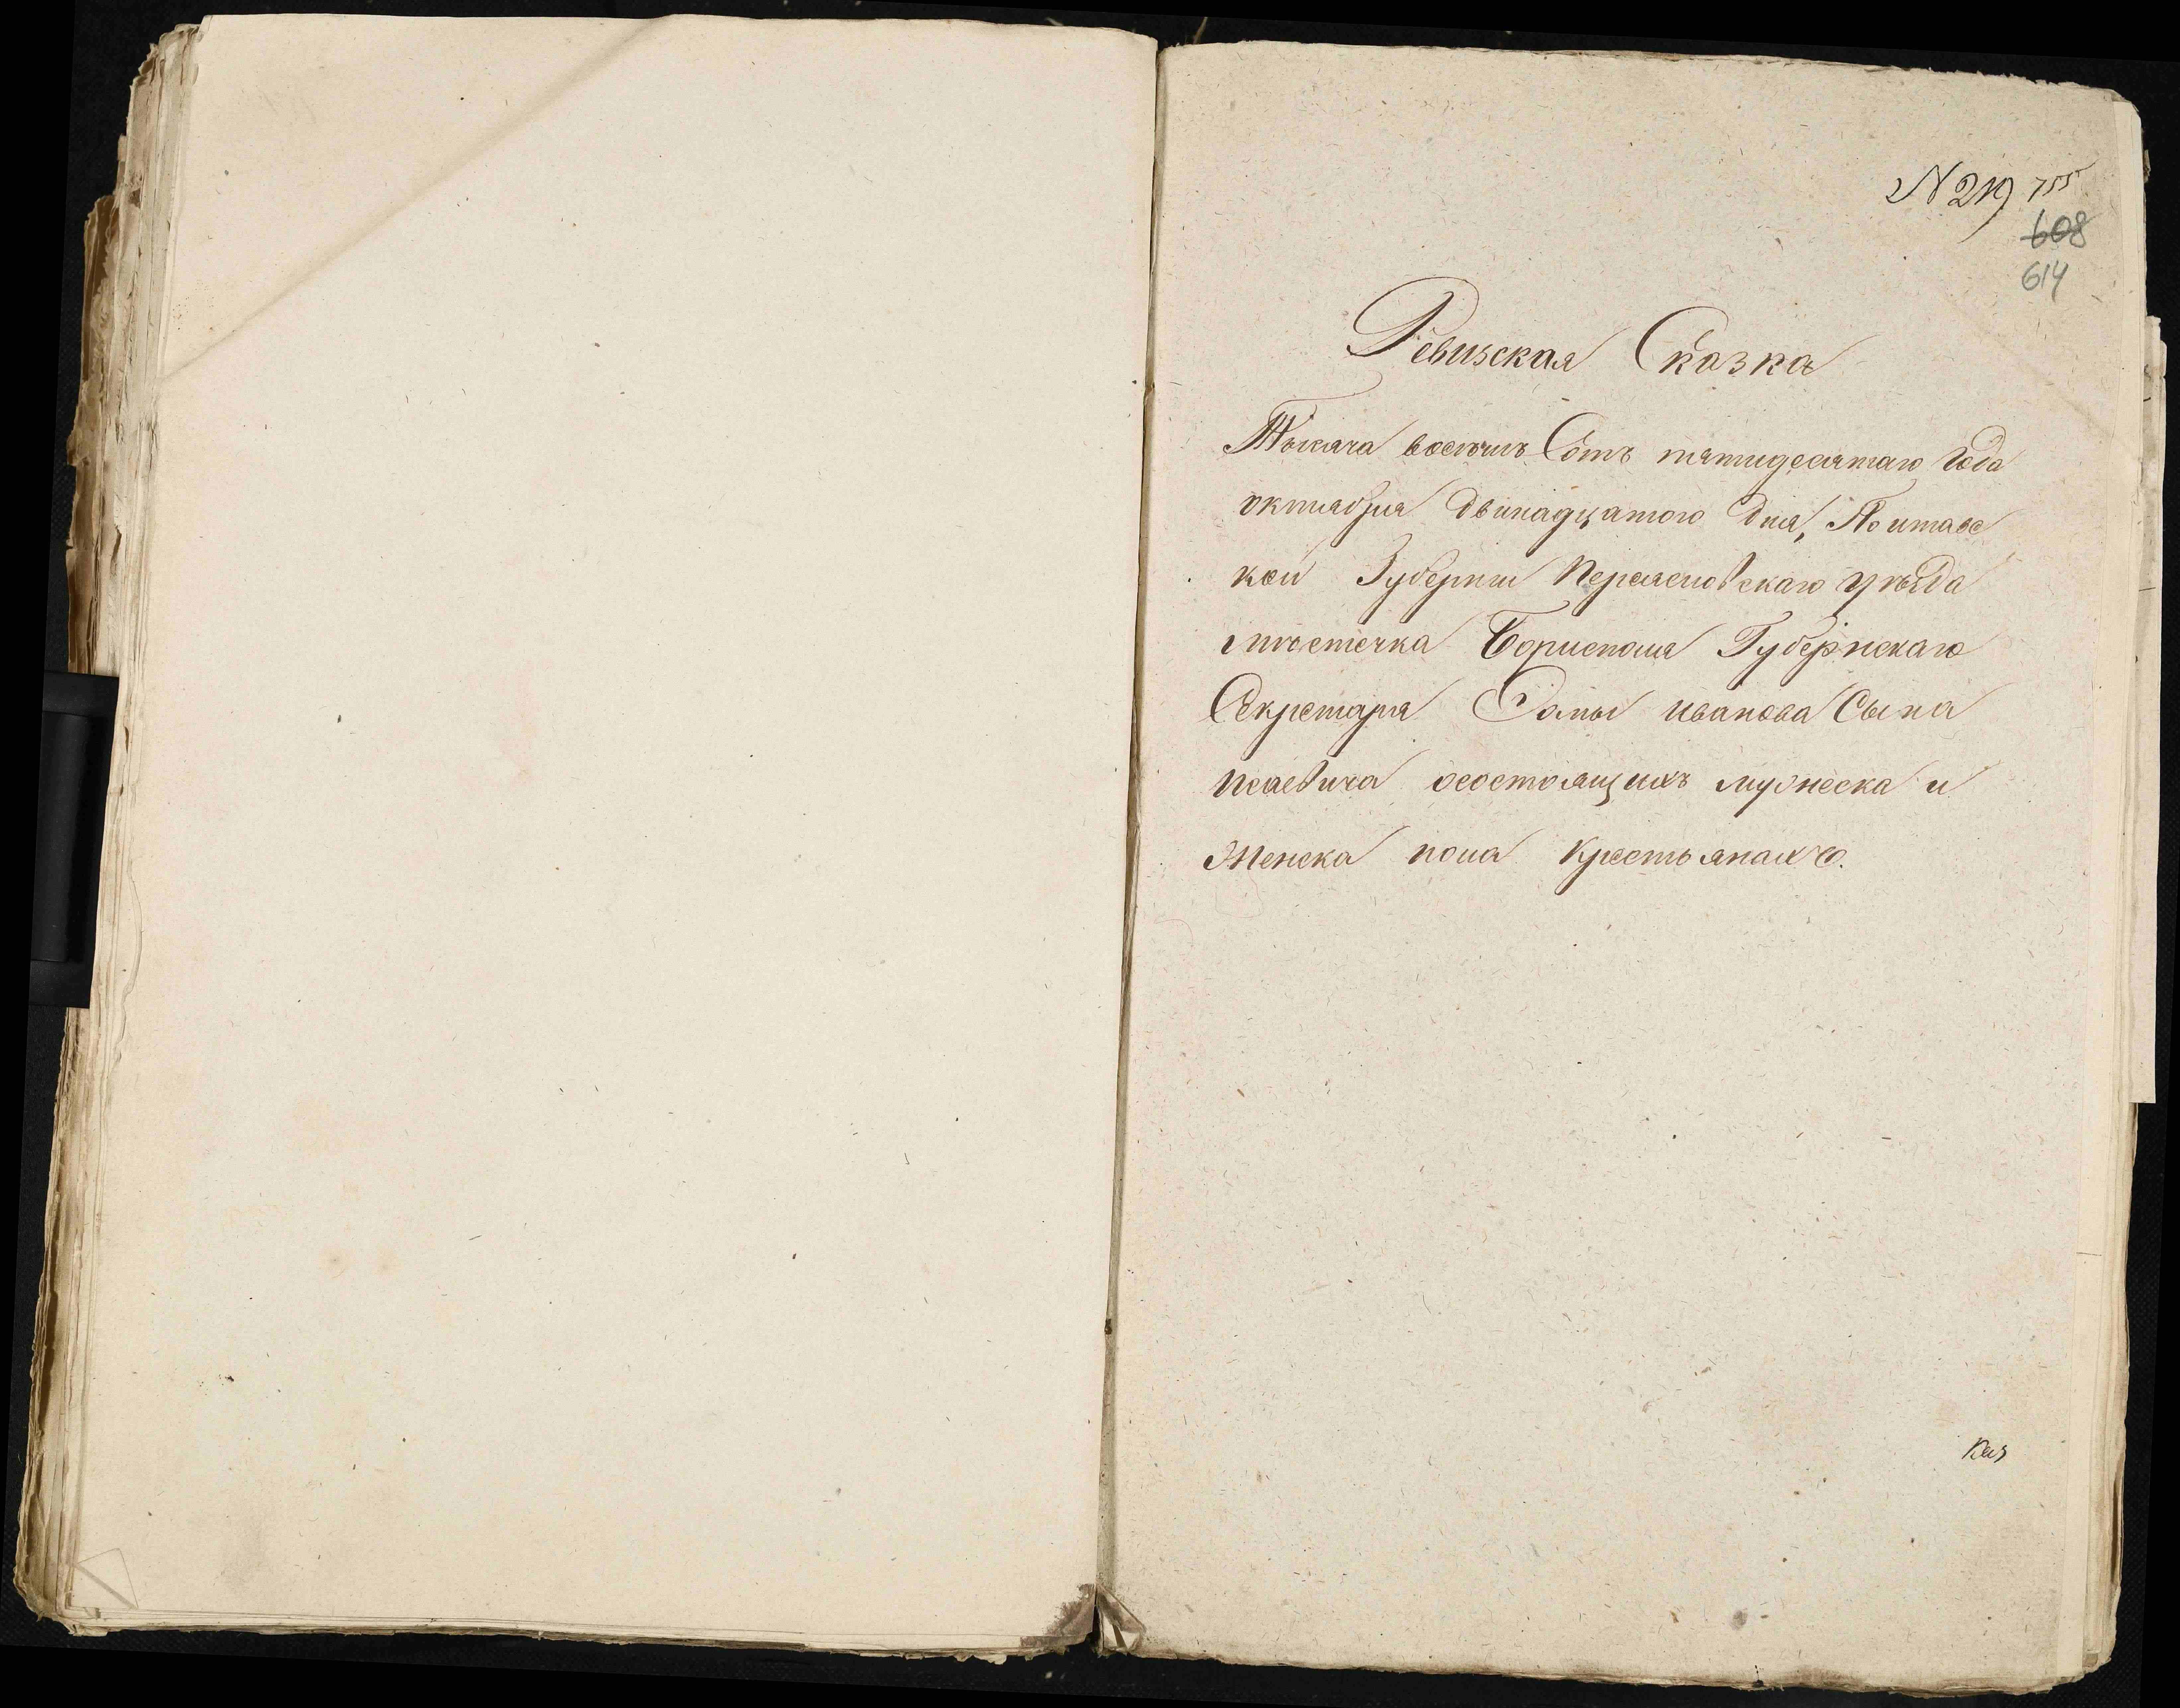 N 219 755
608
614
Ревизская Сказка
Тысяча восемь Сотъ пятидесятаго Года
октиабриа двинадцатого Дня, Полтавс
кой Губернии Переясловскаго уезда
мѣстечка Борисполя Губернскаго
Секретаря Фомы иванова Сына
Исаевича осостоящихъ мужеска и
Женска пола Крестьянахъ.